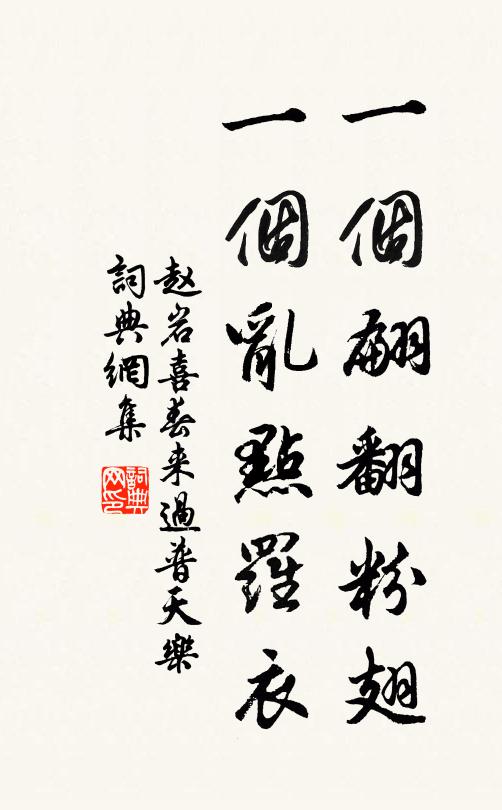 一個翩翻粉翅
一個亂點羅衣
赵岩喜春来過普天樂
詞典網集
詞典
网印